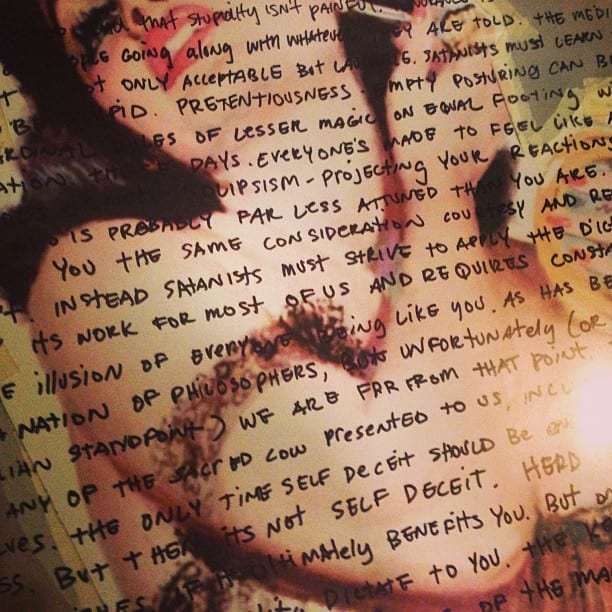 that stupidity isn't painful.
going along with whatever they are told. The medi
ot only acceptable but la s. Satanists must learn
pid. Pretentiousness - empty posturing can b
rdinal les of lesser magic on equal footing w
ation these days. Everyone's made to feel like
solipsism - projecting your reactions
o is probably far less attuned than you are.
you the same consideration courtesy and re
. Instead Satanists must strive to apply the dic
its work for most of us and requires consta
e illusion of everyone being like you. As has be
nation of philosophers, but unfortunately (or
lian standpoint) we are far from that point.
any of the sacred cow presented to us, incl
ves. The only time self deceit should be en
ss. But then its not self deceit. Herd
ultimately benefits you. But o
dictate to you. The k
of the ma